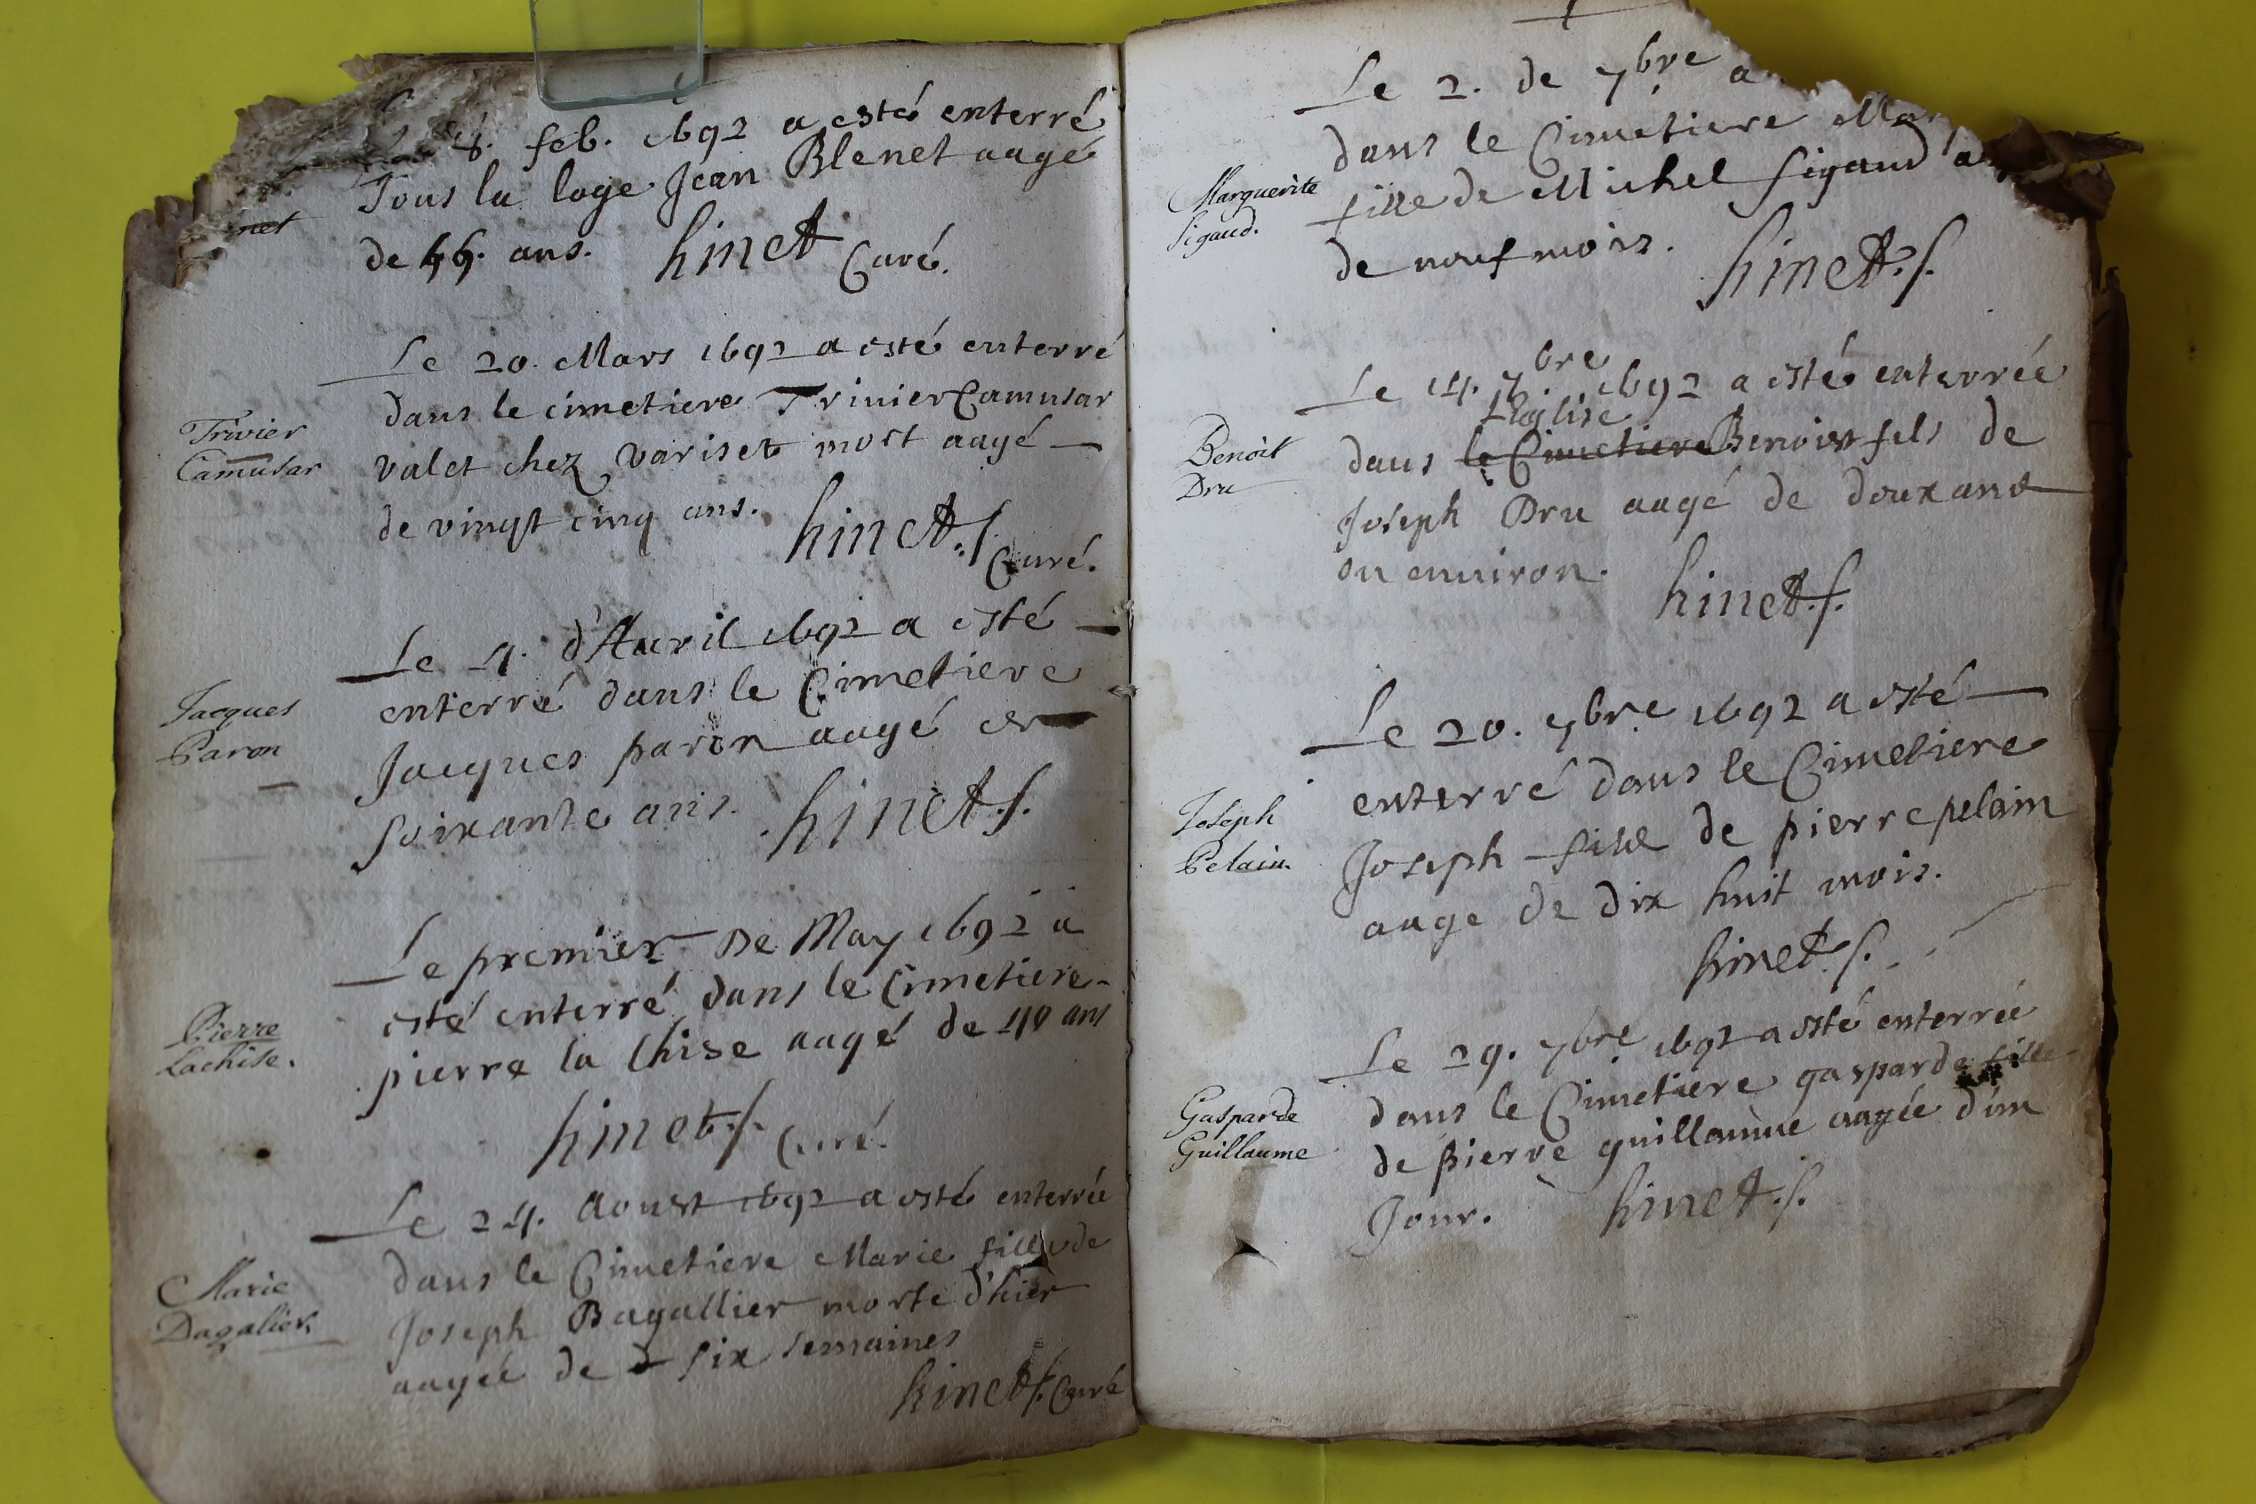 8. feb. 1692 a esté enterré
Sous la loge Jean Blenet aagé
net
de ans. hinet Curé.
Le 20. Mars 1692 a esté enterré
dans le cimetiere Trivier Camusar
Trivier
Camusar
valet chez variset mort aagé
de vingt cinq ans. hinet.
Curé.
Le 4. d'Auril 1692 a esté
enterré dans le Cimetiere
Jacques
Paron
Jacques paron aagé de
soixante ans. hinet.
Le premier De May 1692 a
esté enterré dans le Cimetiere
Pierre
Lachise.
pierre la Chise aagé de 40 ans
hinet. Curé.
Le 24. Aoust 1692 a esté enterrée
dans le Cimetiere Marie fille de
Marie
Dagalier.
Joseph Bagallier morte d'hier
aagée de six semaines
hinet. Curé
Le 2. de 7bre a
dans le Cimetiere Mar
Marguerite
Sigaud.
fille de Michel Sigaud a
de neuf mois. hinet.
Le 14. 7bre 1692 a esté enterrée
L'Eglise
dans le Cimetiere Benoist fils de
Benoit
Dru
Joseph Dru aagé de deux ans
ou enuiron. hinet.
Le 20. 7bre 1692 a esté
enterré dans le Cimetiere
Joseph
Pelain.
Joseph fils de pierre pelain
aage de dix huit mois.
hinet.
Le 29. 7bre 1692 a esté enterrée
dans le Cimetiere gasparde fille
Gasparde
Guillaume
de pierre guillaume aagée d'un
Jour. hinet.